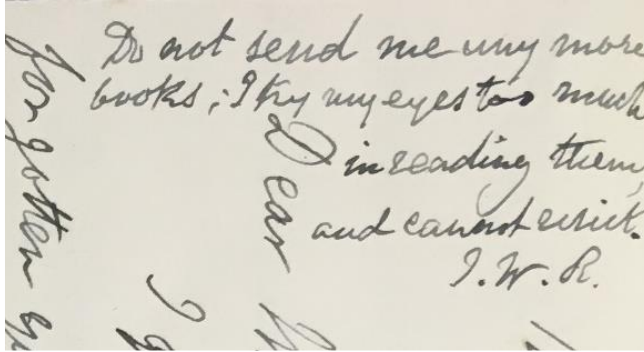 Do not send me any more
books; I try my eyes too much
in reading them,
and cannot resist.
I. W. R.
forgotten
Dear
I